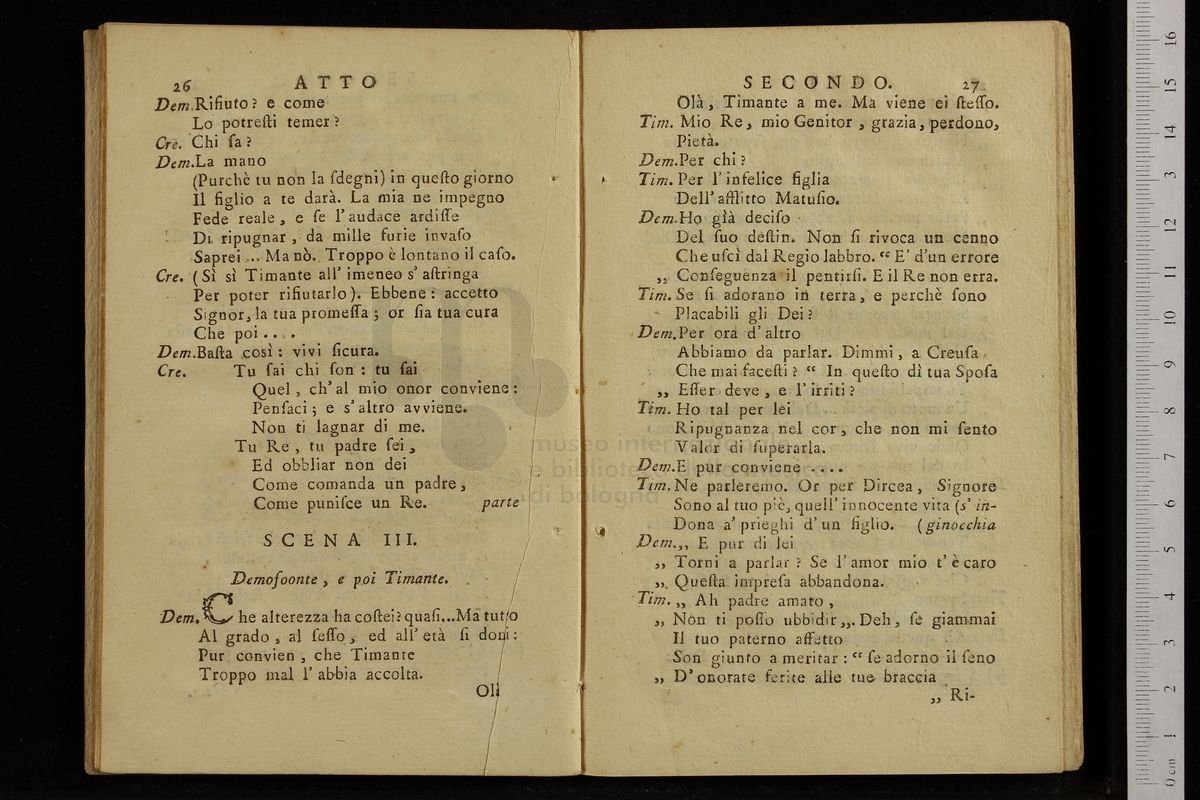 26 ATTO
Dem. Rifiuto? e come
Lo potreſti temer?
Cre. Chi ſa?
Dem. La mano
(Purchè tu non la ſdegni) in queſto giorno
Il figlio a te darà. La mia ne impegno
Fede reale, e ſe l'audace ardiſſe
Di ripugnar, da mille furie invaſo
Saprei... Ma nò. Troppo è lontano il caſo.
Cre. (Sì sì Timante all' imeneo s' aſtringa
Per poter rifiutarlo). Ebbene: accetto
Signor, la tua promeſſa; or ſia tua cura
Che poi....
Dem. Baſta così: vivi ſicura.
Cre. Tu ſai chi ſon: tu ſai
Quel, ch' al mio onor conviene:
Penſaci; e s' altro avviene.
Non ti lagnar di me.
Tu Re, tu padre ſei,
Ed obbliar non dei
Come comanda un padre,
Come puniſce un Re. parte
SCENA III.
Demofoonte, e poi Timante.
Dem. Che alterezza ha coſtei? quaſi...Ma tutto
Al grado, al ſeſſo, ed all' età ſi doni:
Pur convien, che Timante
Troppo mal l' abbia accolta.
Olà
SECONDO. 27
Olà, Timante a me. Ma viene ei ſteſſo.
Tim. Mio Re, mio Genitor, grazia, perdono,
Pietà.
Dem. Per chi?
Tim. Per l' infelice figlia
Dell' afflitto Matuſio.
Dem. Ho già deciſo
Del ſuo deſtin. Non ſi rivoca un cenno
Che uſcì dal Regio labbro. “ E' d'un errore
„ Conſeguenza il pentirſi. E il Re non erra.
Tim. Se ſi adorano in terra, e perchè ſono
Placabili gli Dei?
Dem. Per ora d' altro
Abbiamo da parlar. Dimmi, a Creuſa
Che mai faceſti? “ In queſto dì tua Spoſa
„ Eſſer deve, e l' irriti?
Tim. Ho tal per lei
Ripugnanza nel cor, che non mi ſento
Valor di ſuperarla.
Dem. E pur conviene ....
Tim. Ne parleremo. Or per Dircea, Signore
Sono al tuo piè, quell' innocente vita (s' in-
Dona a' prieghi d' un figlio. (ginocchia
Dem. „ E pur di lei
„ Torni a parlar? Se l' amor mio t' è caro
„ Queſta impreſa abbandona.
Tim. „ Ah padre amato,
„ Non ti poſſo ubbidir „. Deh, ſe giammai
Il tuo paterno affetto
Son giunto a meritar: “ ſe adorno il ſeno
„ D' onorate ferite alle tue braccia
„ Ri-
museo internazionale
e biblioteca della musica
di bologna
0 cm 1 2 3 4 5 6 7 8 9 10 11 12 13 14 15 16